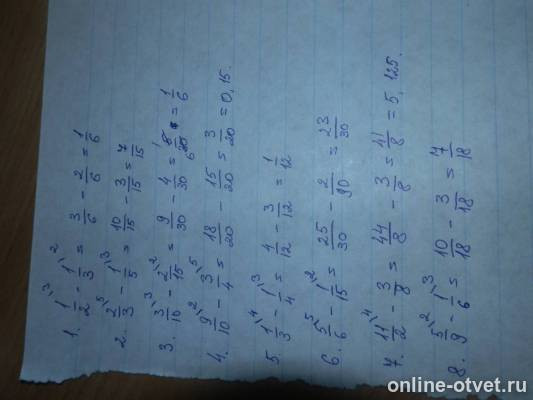 1. 1/2 - 1/3 = 3/6 - 2/6 = 1/6
2. 2/3 - 1/5 = 10/15 - 3/15 = 7/15
3. 3/10 - 2/15 = 9/30 - 4/30 = = 1/6
4. 9/10 - 3/4 = 18/20 - 15/20 = 3/20 = 0,15.
5. 1/3 - 1/4 = 4/12 - 3/12 = 1/12
6. 5/6 - 1/15 = 25/30 - 2/30 = 23/30
7. 11/2 - 3/8 = 44/8 - 3/8 = 41/8 = 5,125.
8. 5/9 - 1/6 = 10/18 - 3/18 = 7/18
online-otvet.ru